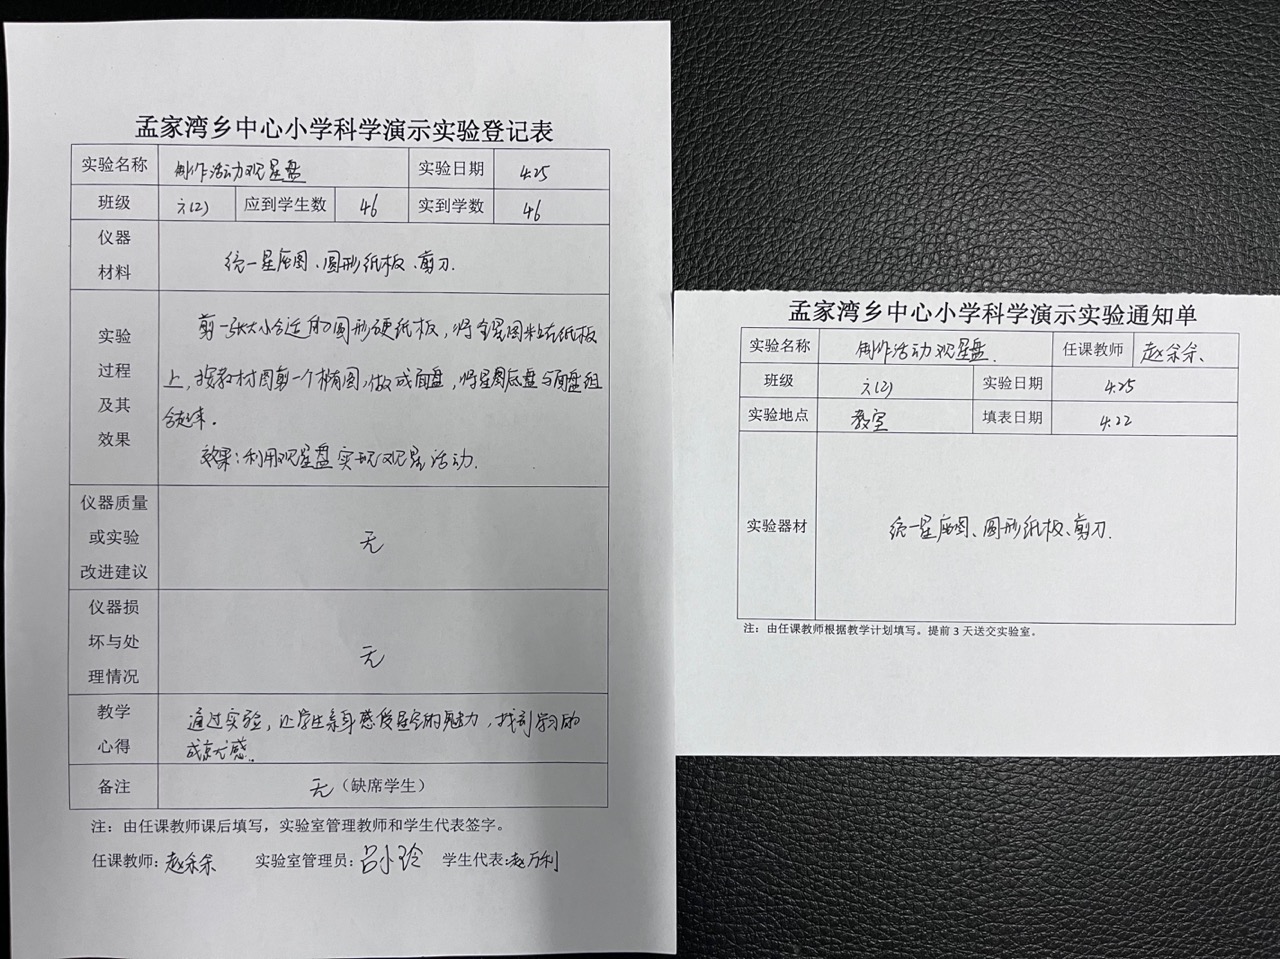 孟家湾乡中心小学科学演示实验登记表
实验名称 制作活动观星盘 实验日期 4.25
班级 六(2) 应到学生数 46 实到学数 46
仪器
材料
统一星座图、圆形纸板、剪刀.
实验
过程
及其
效果
剪一张大小合适的圆形硬纸板,将全星图粘在纸板
上,按教材图剪一个椭圆,做成面盘,将星图底盘与面盘组
合起来.
效果:利用观星盘实现观星活动.
仪器质量
或实验
改进建议
无
仪器损
坏与处
理情况
无
教学
心得
通过实验,让学生亲身感受星空的魅力,找到学习的
成就感.
备注 无(缺席学生)
注:由任课教师课后填写,实验室管理教师和学生代表签字。
任课教师: 实验室管理员:吕小玲 学生代表:赵万利
孟家湾乡中心小学科学演示实验通知单
实验名称 制作活动观星盘. 任课教师
班级 六(2) 实验日期 4.25
实验地点 教室 填表日期 4.22
实验器材 统一星座图、圆形纸板、剪刀.
注:由任课教师根据教学计划填写。提前 3 天送交实验室。